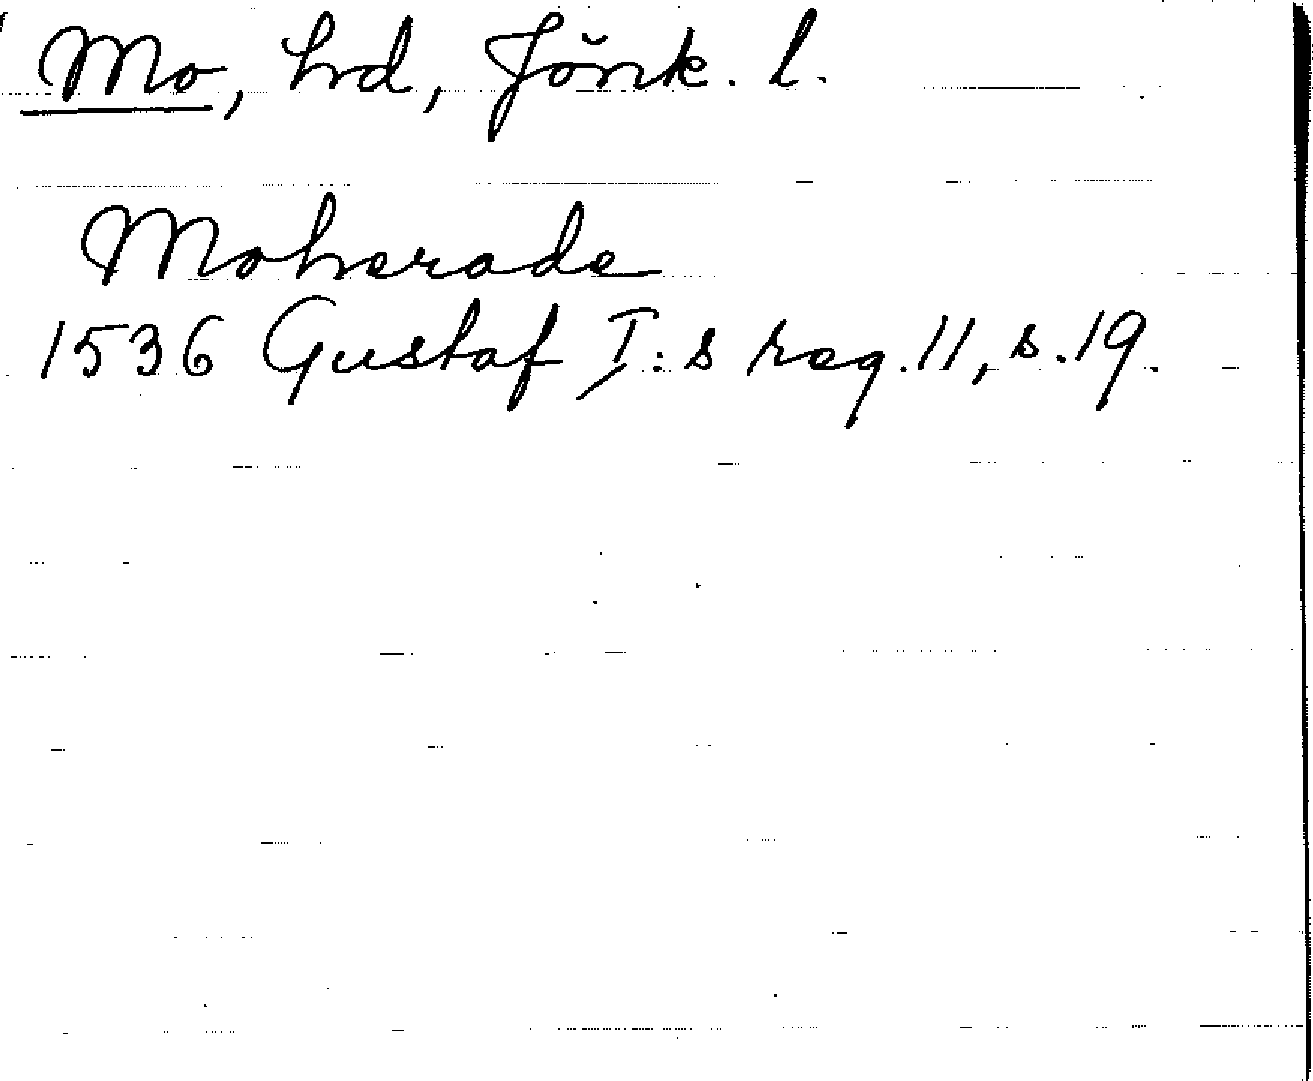 Mo, hd, Jönk. l.
Moherade
1536 Gustaf I:s reg. 11, s. 19.